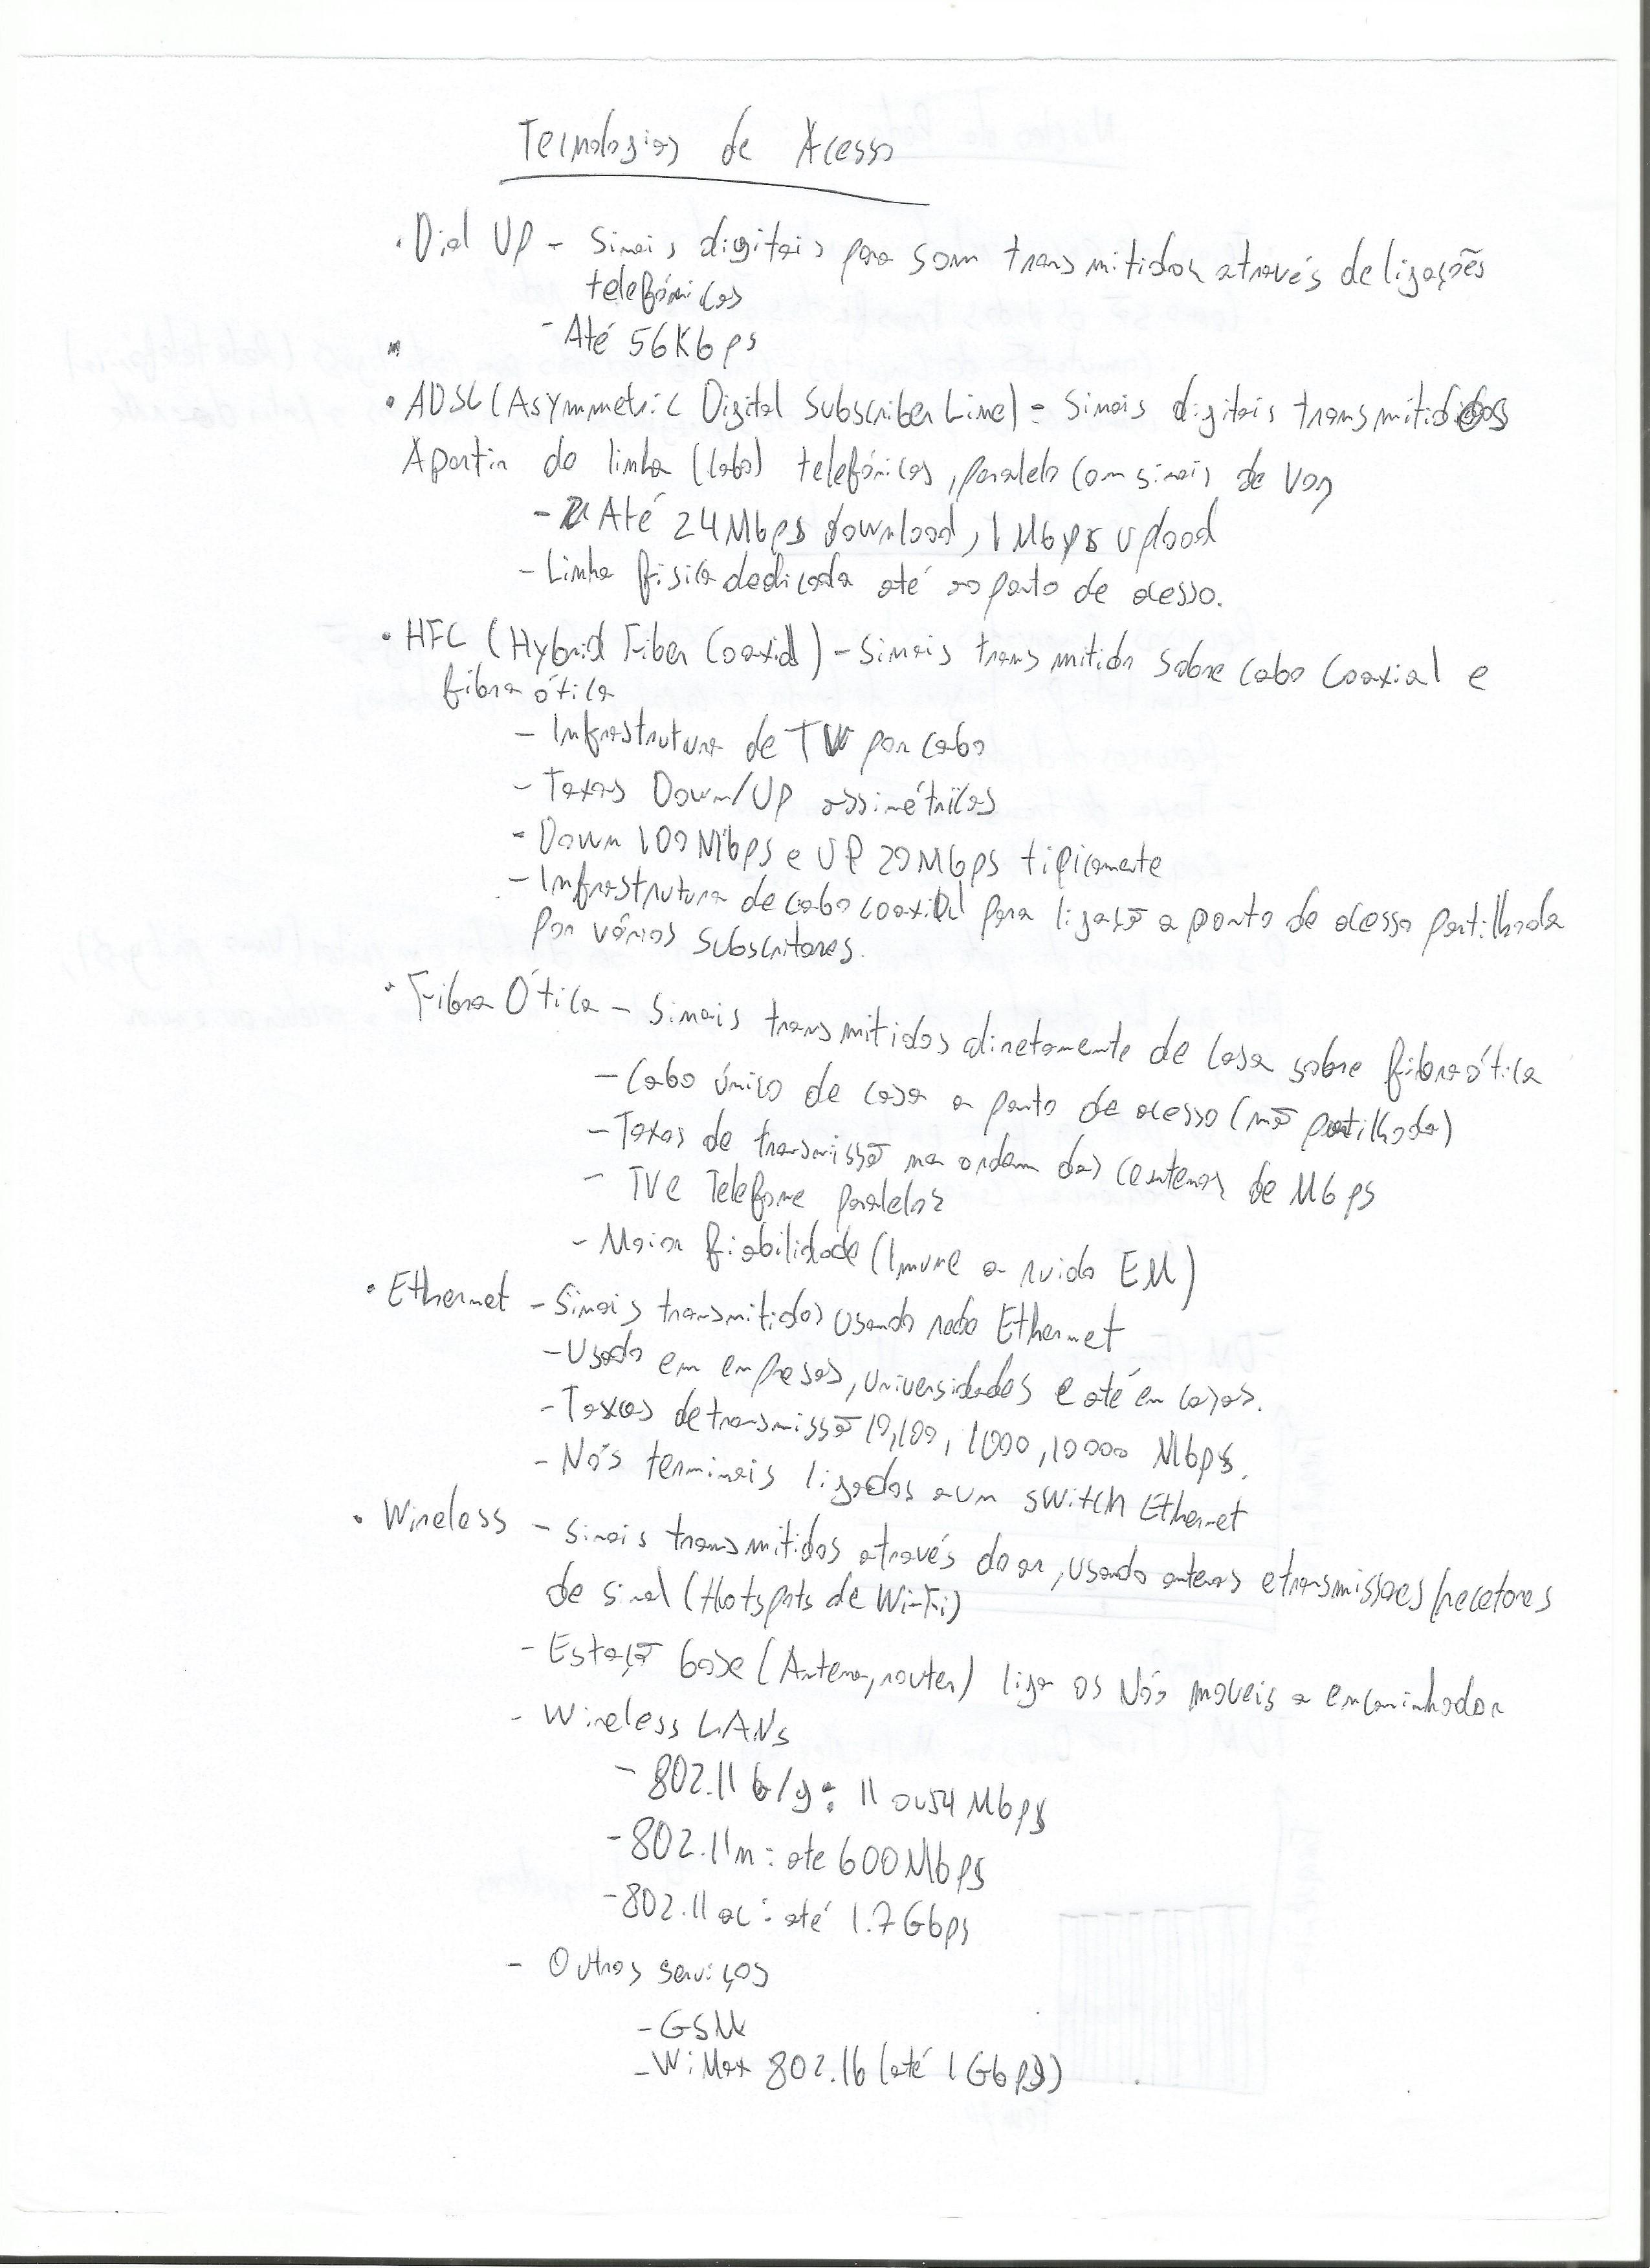 Tecnologias de Acesso
• Dial UP - Sinais digitais para som transmitidos através de ligações
telefónicas
- Até 56Kbps
• ADSL (Asymmetric Digital Subscriber Line) - Sinais digitais transmitidos
Apartir de linha (cabo) telefónicas, paralelo com sinais de voz
- Até 24Mbps download, 1Mbps upload
- Linha fisica dedicada até ao ponto de acesso.
• HFC (Hybrid Fiber Coaxial) - Sinais transmitido sobre cabo coaxial e
fibra ótica
- Infrastrutura de TV por cabo
- Taxas Down/UP assimétricas
- Down 100Mbps e UP 20Mbps tipicamente
- Infrastrutura de cabo coaxial para ligação a ponto de acesso partilhada
por vários subscritores.
• Fibra Ótica - Sinais transmitidos diretamente de casa sobre fibra ótica
- Cabo único de casa a ponto de acesso (não partilhado)
- Taxas de transmissão na ordem das centenas de Mbps
- TV e Telefone paralelos
- Maior fiabilidade (Imune a ruido EM)
• Ethernet - Sinais transmitidos usando Ethernet
- Usado em empresas, universidades e até em casas.
- Taxas de transmissão 10, 100, 1000, 10000 Mbps.
- Nós terminais ligados a um switch Ethernet
• Wireless - Sinais transmitidos através do ar, usando antenas e transmissores/recetores
de sinal (Hotspots de Wi-Fi)
- Estação base (Antena, router) liga os Nós moveis a encaminhador
- Wireless LANs
- 802.11 b/g: 11 ou 54 Mbps
- 802.11n: ate 600Mbps
- 802.11 ac: até 1.7Gbps
- Outros serviços
- GSM
- WiMax 802.16 (até 1Gbps)